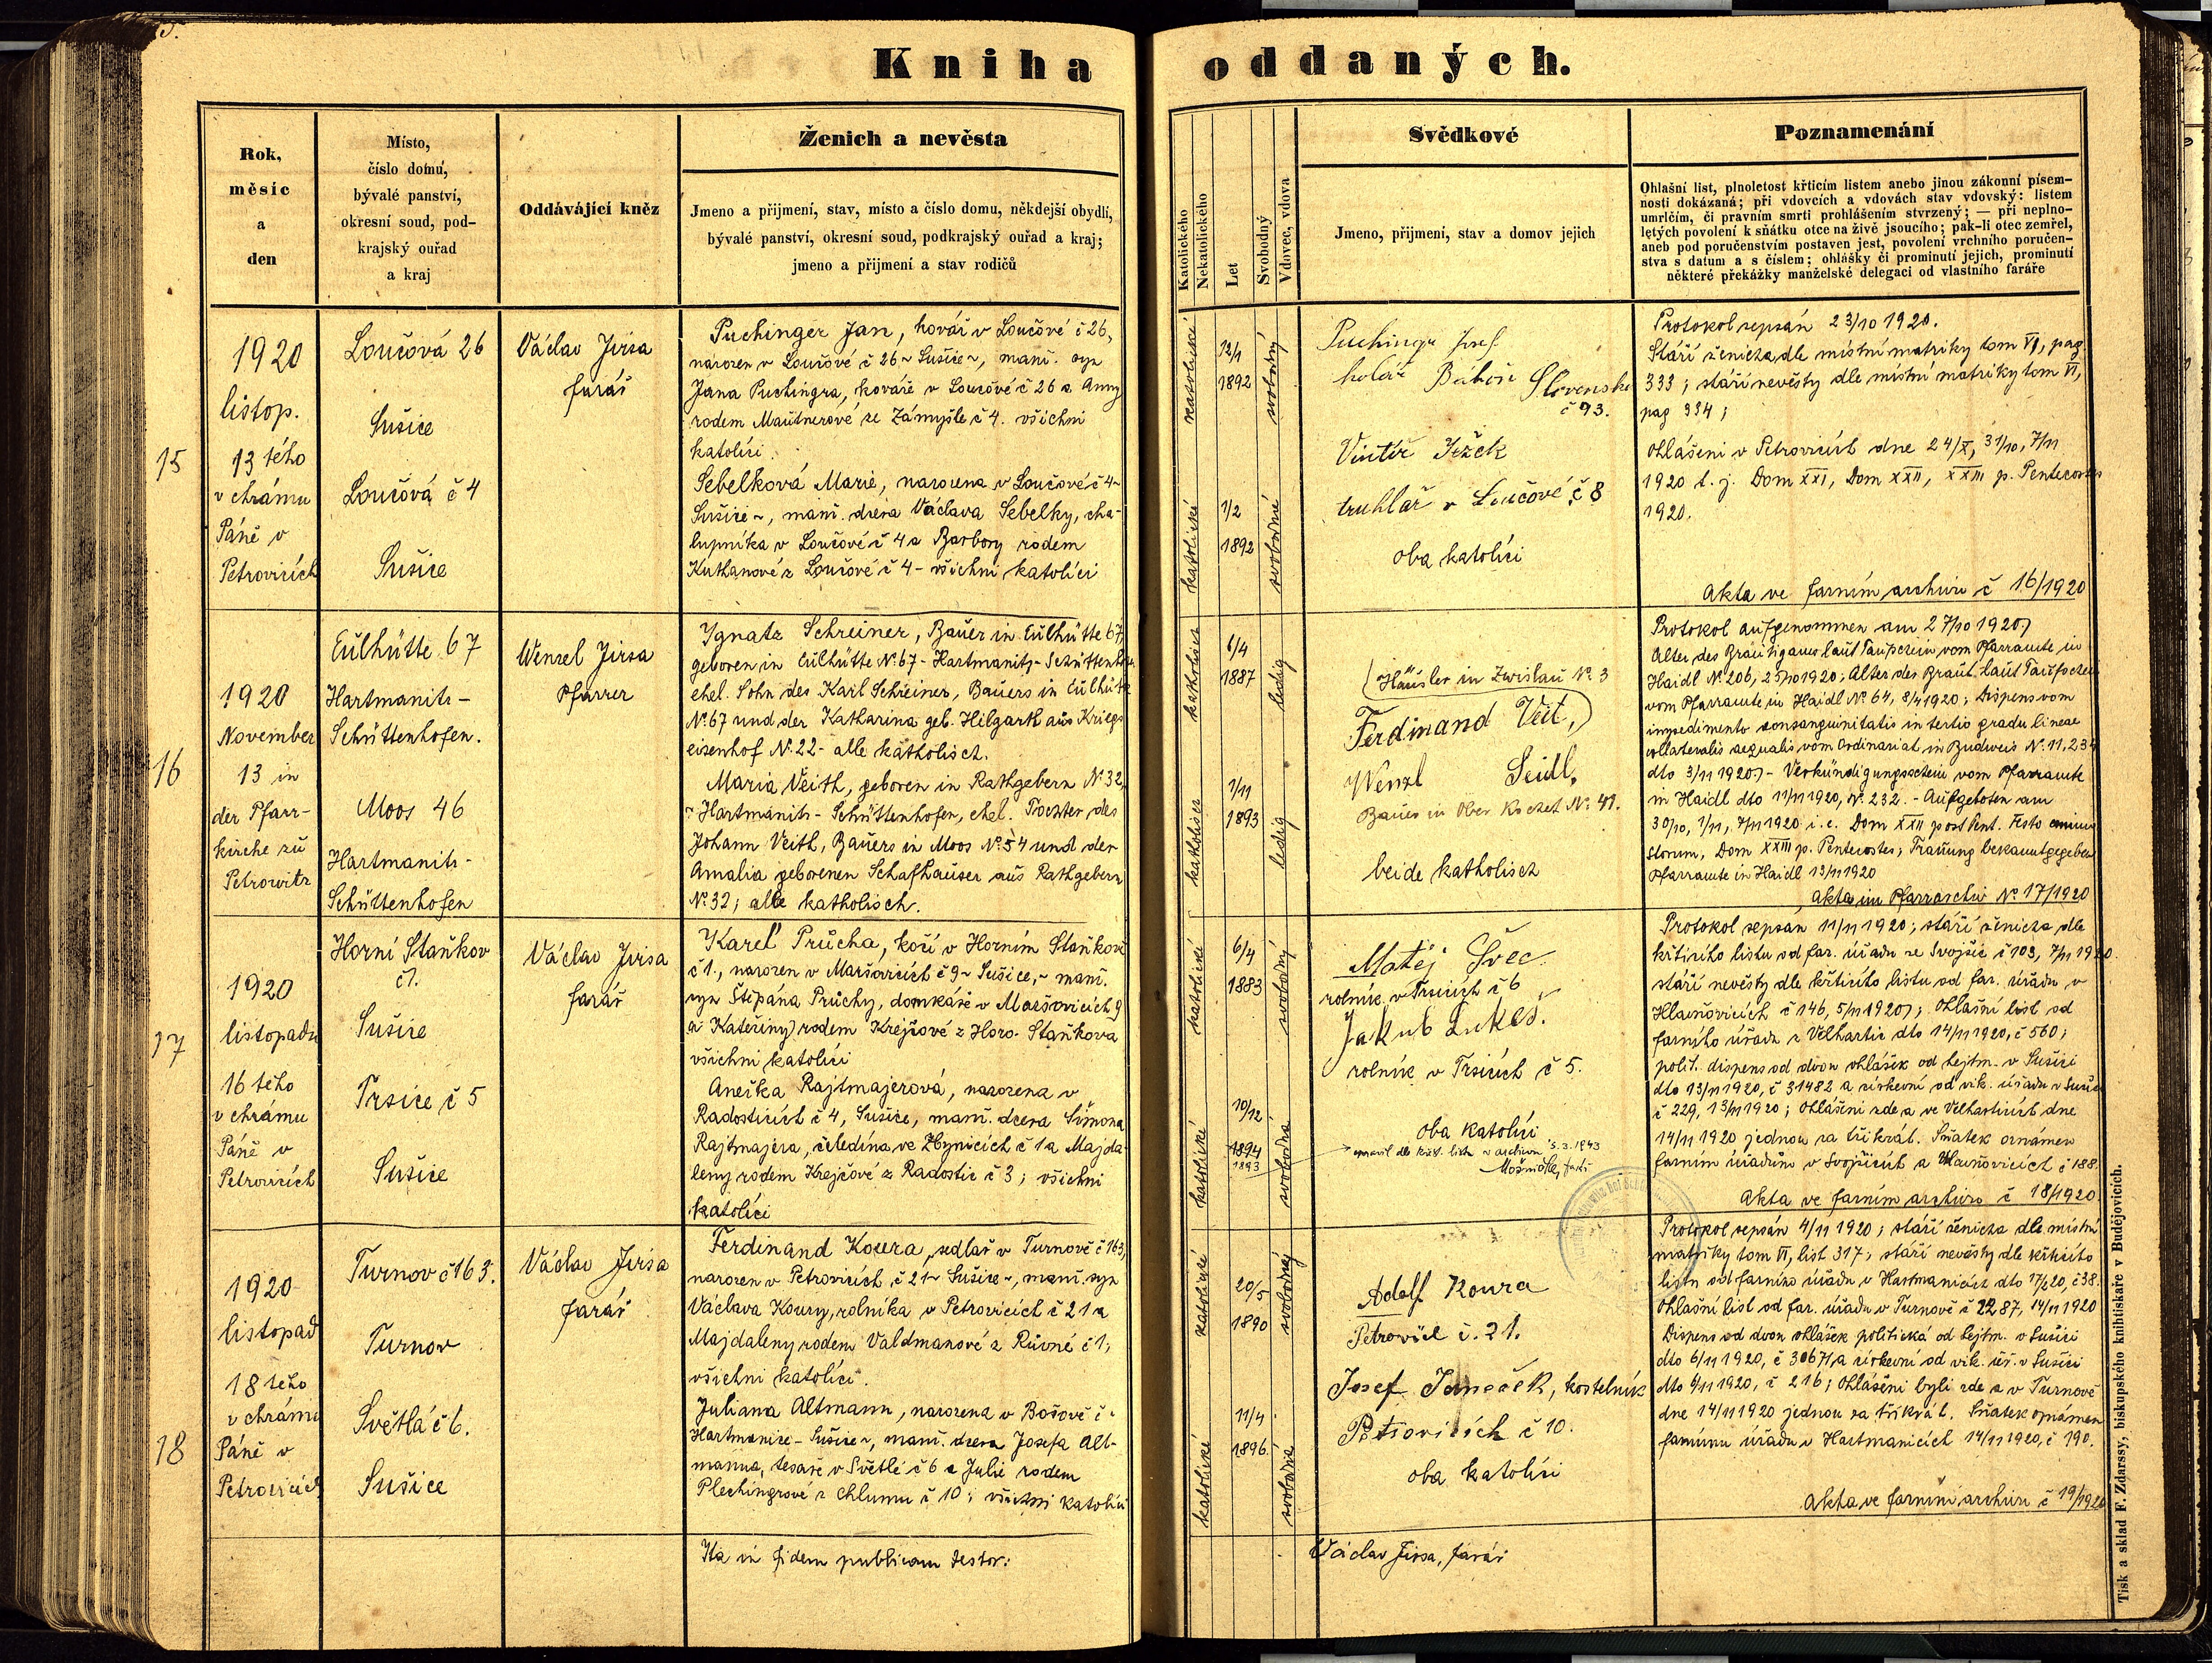 Kniha oddaných.
Rok,
měsíc
a
den
Místo,
číslo domu,
bývalé panství,
okresní soud, pod-
krajský ouřad
a kraj
Oddávající kněz
Ženich a nevěsta
Jmeno a přijmení, stav, místo a číslo domu, někdejší obydlí,
bývalé panství, okresní soud, podkrajský ouřad a kraj;
jmeno a přijmení a stav rodičů
Katolického
Nekatolického
Let
Svobodný
Vdovec, vdova
Svědkové
Jmeno, přijmení, stav a domov jejich
Poznamenání
Ohlašní list, plnoletost křticím listem anebo jinou zákonní písem-
nosti dokázaná; při vdovcích a vdovách stav vdovský: listem
umrlčím, či pravním smrti prohlášením stvrzený; — při neplno-
létých povolení k sňátku otce na živě jsoucího; pak-li otec zemřel,
aneb pod poručenstvím postaven jest, povolení vrchního poručen-
stva s datum a s číslem; ohlášky či prominutí jejich, prominutí
některé překážky manželské delegaci od vlastního faráře
15
1920
listop.
13 tého
v chrámu
Páně v
Petrovicích
Loučová 26
Sušice
Loučová č 4
Sušice
Václav Jirsa
farář
Puchinger Jan, kovář v Loučové č 26,
narozen v Loučové č 26 ~ Sušice ~, manž. syn
Jana Puchingra, kováře v Loučové č 26 a Anny
rodem Mautnerové ze Zámyšle č 4. všichni
katolíci.
Sebelková Marie, narozena v Loučové č 4 ~
Sušice ~, manž. dcera Václava Sebelky, cha-
lupníka v Loučové č 4 a Barbory rodem
Kuthanové z Loučové č 4 - všichni katolíci
katolické
12/1
1892
svobodný
katolické
1/2
1892
svobodná
Puchingr Josef
kolář
č 93.
Ježek
truhlář v Loučové č 8
oba katolíci
Protokol sepsán 23/10 1920.
Stáří ženicha dle místní matriky tom VI, pag
333; stáří nevěsty dle místní matriky tom VI,
pag 334;
Ohlášeni v Petrovicích dne 24/X, 31/10, 7/11
1920 t. j. Dom XXI, Dom XXII, XXIII p. Pentecostes
1920.
Akta ve farním archivu č 16/1920
16
1920
November
13 in
der Pfarr-
kirche zu
Petrowitz
Eulhütte 67
Hartmanitz -
Schüttenhofen.
Moos 46
Hartmanitz -
Schüttenhofen
Wenzel Jirsa
Pfarrer
Ignatz Schreiner, Bauer in Eulhütte 67,
geboren in Eulhütte No 67 - Hartmanitz - Schüttenhofen
ehel. Sohn des Karl Schreiner, Bauers in Eulhütte
No 67 und der Katharina geb. Hilgart aus Kriegs
eisenhof No 22 - alle katholisch.
Maria Veith, geboren in Rathgebern No 32,
- Hartmanitz - Schüttenhofen, ehel. Tochter des
Johann Veith, Bauers in Moos No 54 und der
Amalia geborenen Schafhauser aus Rathgebern
No 32; alle katholisch.
katholisch
6/4
1887
ledig
katholisch
1/11
1893
ledig
Häusler in Zwislau No 3
Ferdinand Veit,
Wenzl Seidl,
Bauer in Ober No 41.
beide katholisch
Protokol aufgenommen am 27/10 1920;
Alter des Bräutigams laut Taufschein vom Pfarramte in
Haidl No 206, 25/10 1920; Alter der Braut laut Taufschein
vom Pfarramte in Haidl No 64, 8/4 1920; Dispens vom
impedimento consanguinitatis in tertio gradu lineae
collateralis aequalis vom Ordinariat in Budweis No 11,234
dto 3/11 1920; - Verkündigungsschein vom Pfarramte
in Haidl dto 11/11 1920, No 232. - Aufgeboten am
30/10, 1/11, 7/11 1920 i. e. Dom XXII post Pent. Festo omnium
Storum, Dom XXIII p. Pentecostes; Trauung bekanntgegeben
Pfarramte in Haidl 13/11 1920
Akta im Pfarrarchiv No 17/1920
17
1920
listopadu
16 tého
v chrámu
Páně v
Petrovicích
Horní Staňkov
č 1.
Sušice
Trsice č 5
Sušice
Václav Jirsa
farář
Karel Průcha, kočí v Horním Staňkově
č 1., narozen v Maršovicích č 9 ~ Sušice, ~ manž.
syn Štěpána Průchy, domkáře v Maršovicích 9
a Kateřiny rodem Krejčové z Horo. Staňkova
všichni katolíci
Anežka Rajtmajerová, narozena v
Radosticích č 4, Sušice, manž. dcera Šimona
Rajtmajera, čeledína ve Zbynicích č 1 a Majda-
leny rodem Krejčové z Radostic č 3; všichni
katolíci
katolické
6/4
1883
svobodný
katolické
10/12
1894
1893
svobodná
Matěj Švec
rolník v Trsicích č 6
Jakub Lukeš.
rolník v Trsicích č 5.
oba katolíci
opravil dle křest. listu v archivu 5. 3. 1943
farář
Protokol sepsán 11/11 1920; stáří ženicha dle
křticího listu od far. úřadu ze Svojšic č 103, 7/11 1920.
stáří nevěsty dle křticího listu od far. úřadu v
Hlavňovicích č 146, 5/11 1920; Ohlašní list od
farního úřadu z Velhartic dto 14/11 1920, č 560;
polit. dispens od dvou ohlášek od hejtm. v Sušici
dto 13/11 1920, č 31482 a církevní od vik. úřadu v Sušici
č 229, 13/11 1920; Ohlášeni zde a ve Velharticích dne
14/11 1920 jednou za třikrát. Sňatek oznámen
farním úřadům v Svojšicích a Hlavňovicích č 188.
Akta ve farním archivu č 18/1920
18
1920
listopad
18 tého
v chrámu
Páně v
Petrovicích
Turnov č 163.
Turnov
Světlá č 6.
Sušice
Václav Jirsa
farář
Ferdinand Koura, sedlář v Turnově č 163,
narozen v Petrovicích č 21 ~ Sušice ~, manž. syn
Václava Koury, rolníka v Petrovicích č 21 a
Majdaleny rodem Valdmanové z Růvné č 1,
všichni katolíci.
Juliana Altmann, narozena v Bošově č.
Hartmanice - Sušice ~, manž. dcera Josefa Alt-
manna, tesaře v Světlé č 6 a Julie rodem
Plechingrové z Chlumu č 10; všichni katolíci
katolické
20/5
1890
svobodný
katolické
11/4
1896.
svobodná
Adolf Koura
Petrovice č. 21.
Josef Janeček, kostelník
Petrovicích č 10.
oba katolíci
Protokol sepsán 4/11 1920; stáří ženicha dle místní
matriky tom VI, list 317; stáří nevěsty dle křticího
listu od farního úřadu v Hartmanicích dto 17/2 20, č 38.
Ohlašní list od far. úřadu v Turnově č 2287, 14/11 1920
Dispens od dvou ohlášek politická od hejtm. v Sušici
dto 6/11 1920, č 30671, a církevní od vik. úř. v Sušici
dto 4/11 1920, č 216; Ohlášeni byli zde a v Turnově
dne 14/11 1920 jednou za třikrát. Sňatek oznámen
farnímu úřadu v Hartmanicích 14/11 1920, č 190.
Akta ve farním archivu č 19/1920
Ita in fidem publicam testor:
Václav Jirsa, farář
Tisk a sklad F. Zdarssy, biskupského knihtiskaře v Budějovicích.